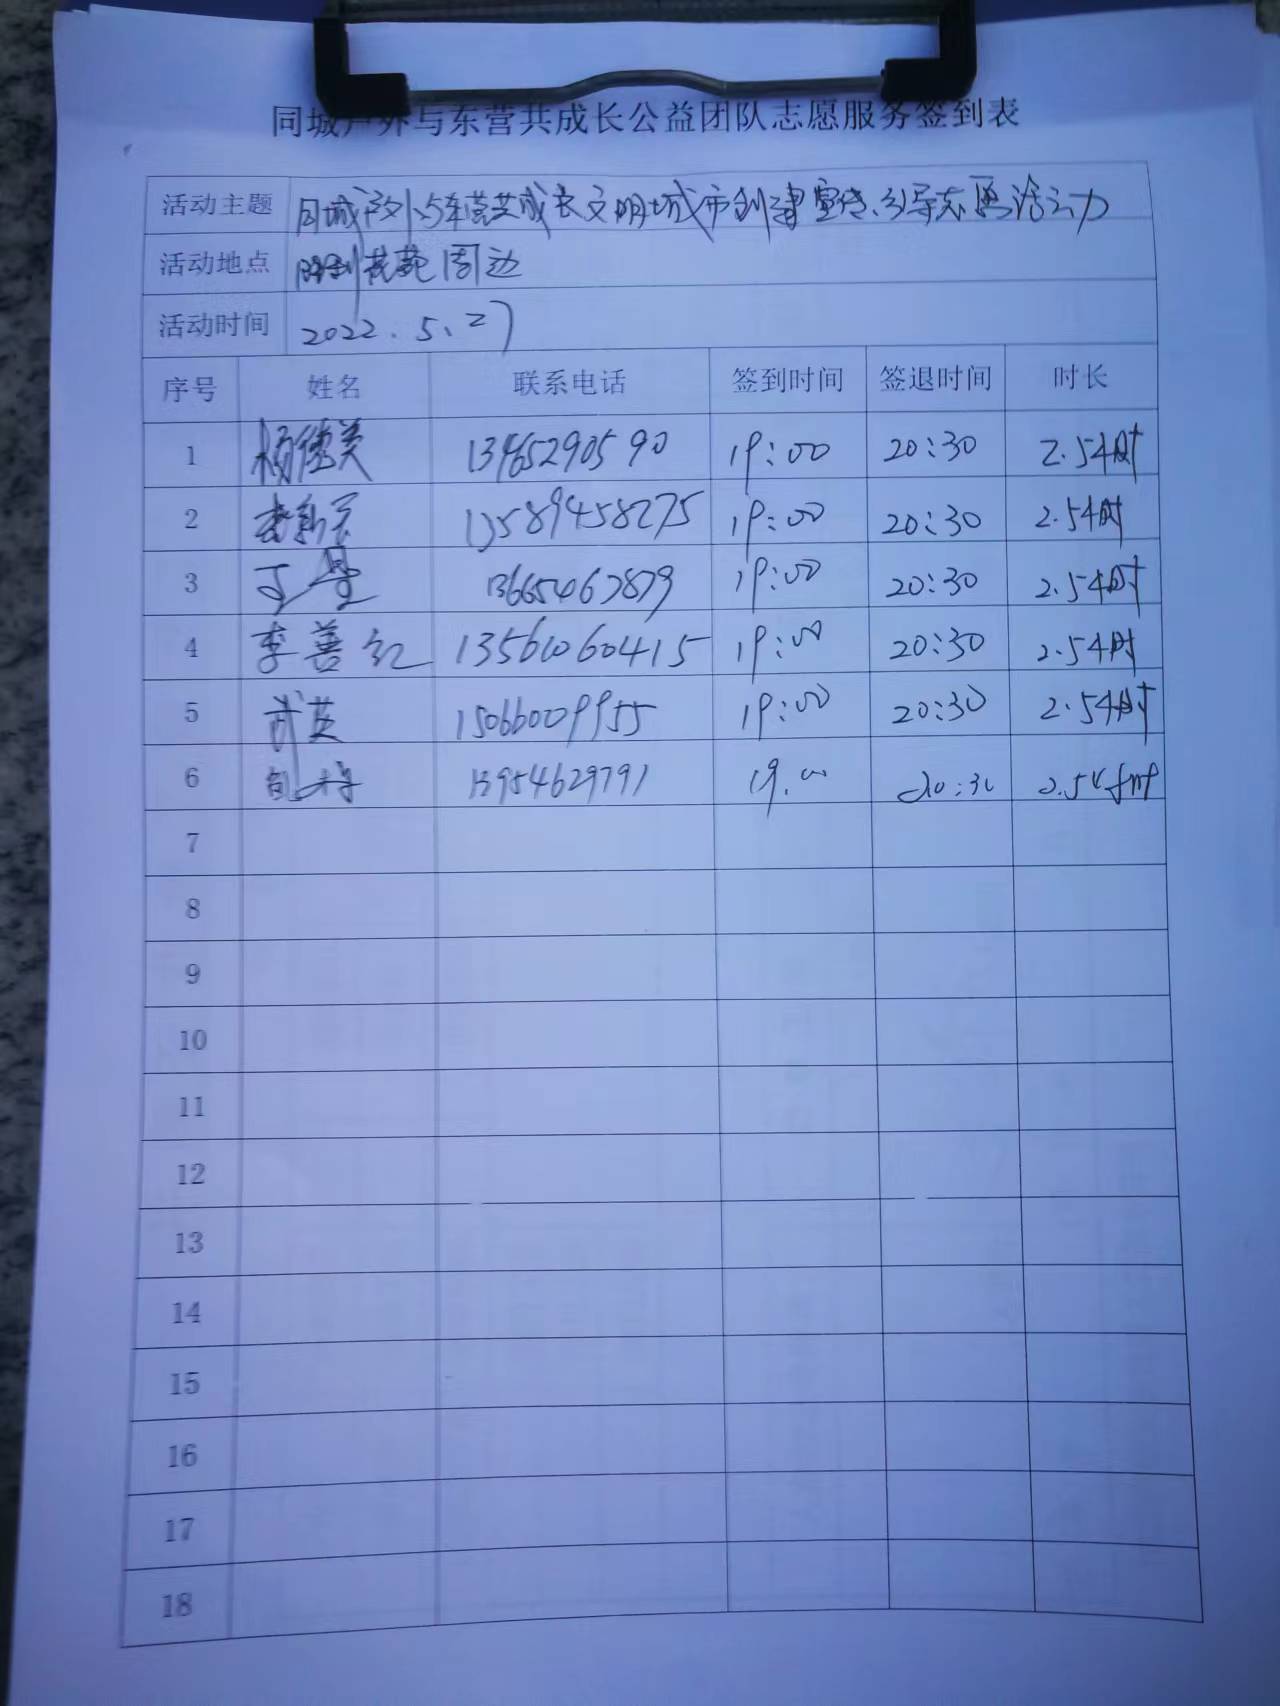 同城户外与东营共成长公益团队志愿服务签到表
活动主题 同城户外与东营共成长文明城市创建宣传、引导志愿活动
活动地点 花苑周边
活动时间 2022.5.27
序号 姓名 联系电话 签到时间 签退时间 时长
1 杨俊美 13465290590 19:00 20:30 2.5小时
2 13589458275 19:00 20:30 2.5小时
3 19:00 20:30 2.5小时
4 李善红 13561060415 19:00 20:30 2.5小时
5 武英 15066009955 19:00 20:30 2.5小时
6 13954629791 19:00 20:30 2.5小时
7
8
9
10
11
12
13
14
15
16
17
18